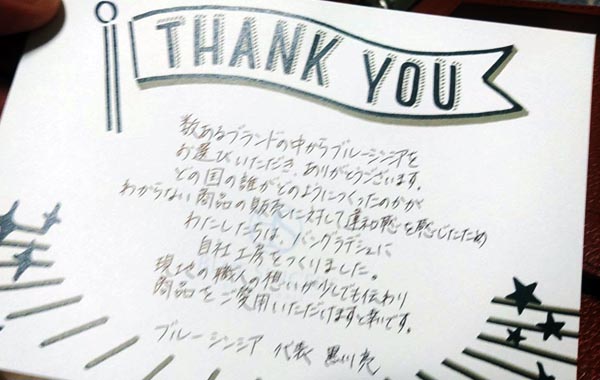 THANK YOU
数あるブランドの中からブルーシンシアを
お選びいただき、ありがとうございます。
どの国の誰がどのようにつくったのかが
わからない商品の販売に対して違和感を感じたため
わたしたちは、バングラデシュに
自社工房をつくりました。
現地の職人の想いが少しでも伝わり
商品をご愛用いただけますと幸いです。
ブルーシンシア 代表 黒川亮